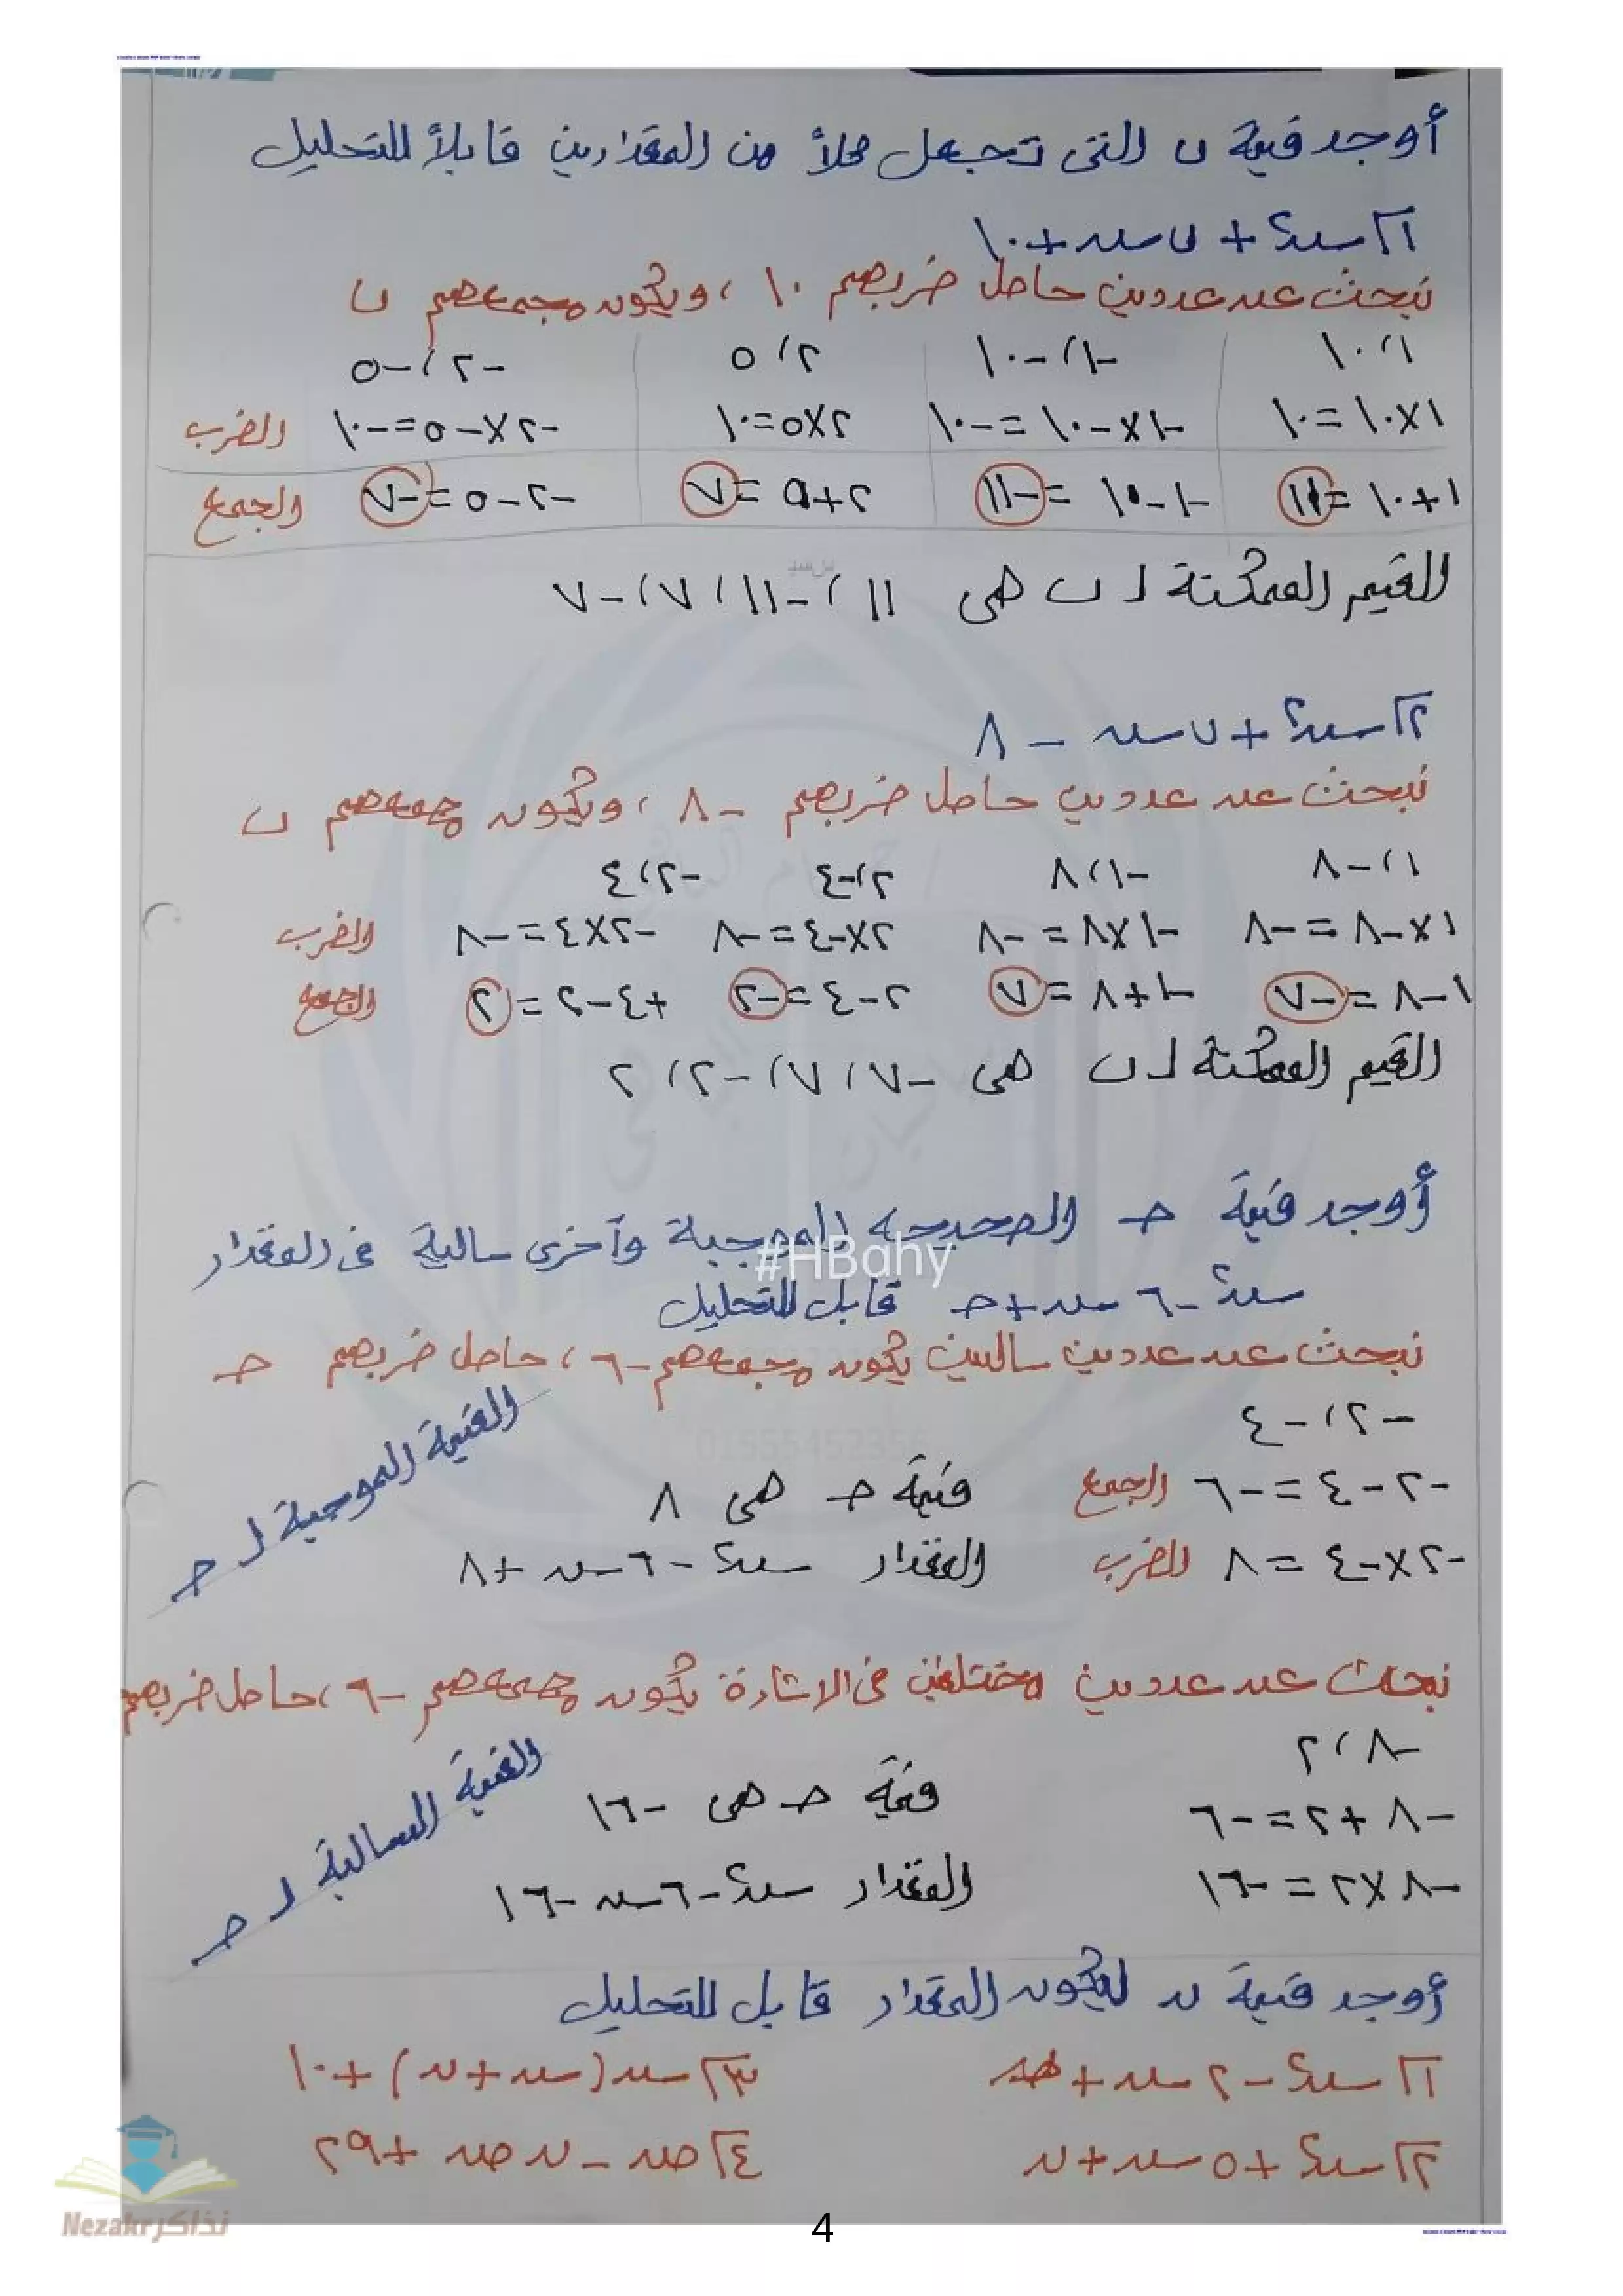 أوجد قيمة ن التى تجعل كلاً من المقدارين قابلاً للتحليل
١] س² + ن س + ١٠
نبحث عن عددين حاصل ضربهم ١٠ ، ويكون مجموعهم ن
١ ، ١٠ -١ ، -١٠ ٢ ، ٥ -٢ ، -٥
١×١٠=١٠ -١×-١٠=-١٠ ٢×٥=١٠ -٢×-٥=-١٠ الضرب
١+١٠=١١ -١-١٠=-١١ ٢+٥=٧ -٢-٥=-٧ الجمع
القيم الممكنة لـ ن هى ١١ ، -١١ ، ٧ ، -٧
٢] س² + ن س - ٨
نبحث عن عددين حاصل ضربهم -٨ ، ويكون جمعهم ن
١ ، -٨ -١ ، ٨ ٢ ، -٤ -٢ ، ٤
١×-٨=-٨ -١×٨=-٨ ٢×-٤=-٨ -٢×٤=-٨ الضرب
١-٨=-٧ -١+٨=٧ ٢-٤=-٢ +٤-٢=٢ الجمع
القيم الممكنة لـ ن هى -٧ ، ٧ ، -٢ ، ٢
أوجد قيمة حـ الصحيحه الموجبة وآخرى سالبة فى المقدار
#HBahy
س² - ٦ س + حـ قابل للتحليل
نبحث عن عددين سالبين يكون مجموعهم -٦ ، حاصل ضربهم حـ
القيمة الموجبة لـ حـ
-٢ ، -٤
-٢-٤=-٦ الجمع قيمة حـ هى ٨
-٢×-٤=٨ الضرب المقدار س² - ٦ س + ٨
نبحث عن عددين مختلفين فى الاشارة يكون جمعهم -٦ ، حاصل ضربهم
القيمة السالبة لـ حـ
-٨ ، ٢
-٨+٢=-٦ قيمة حـ هى -١٦
-٨×٢=-١٦ المقدار س² - ٦ س - ١٦
أوجد قيمة ن ليكون المقدار قابل للتحليل
١] س² - ٢ س + ٣] س (س + ن) + ١٠
٢] س² + ٥ س + ن ٤] ص - ن ص + ٢٩
Nezakr نذاكر
4